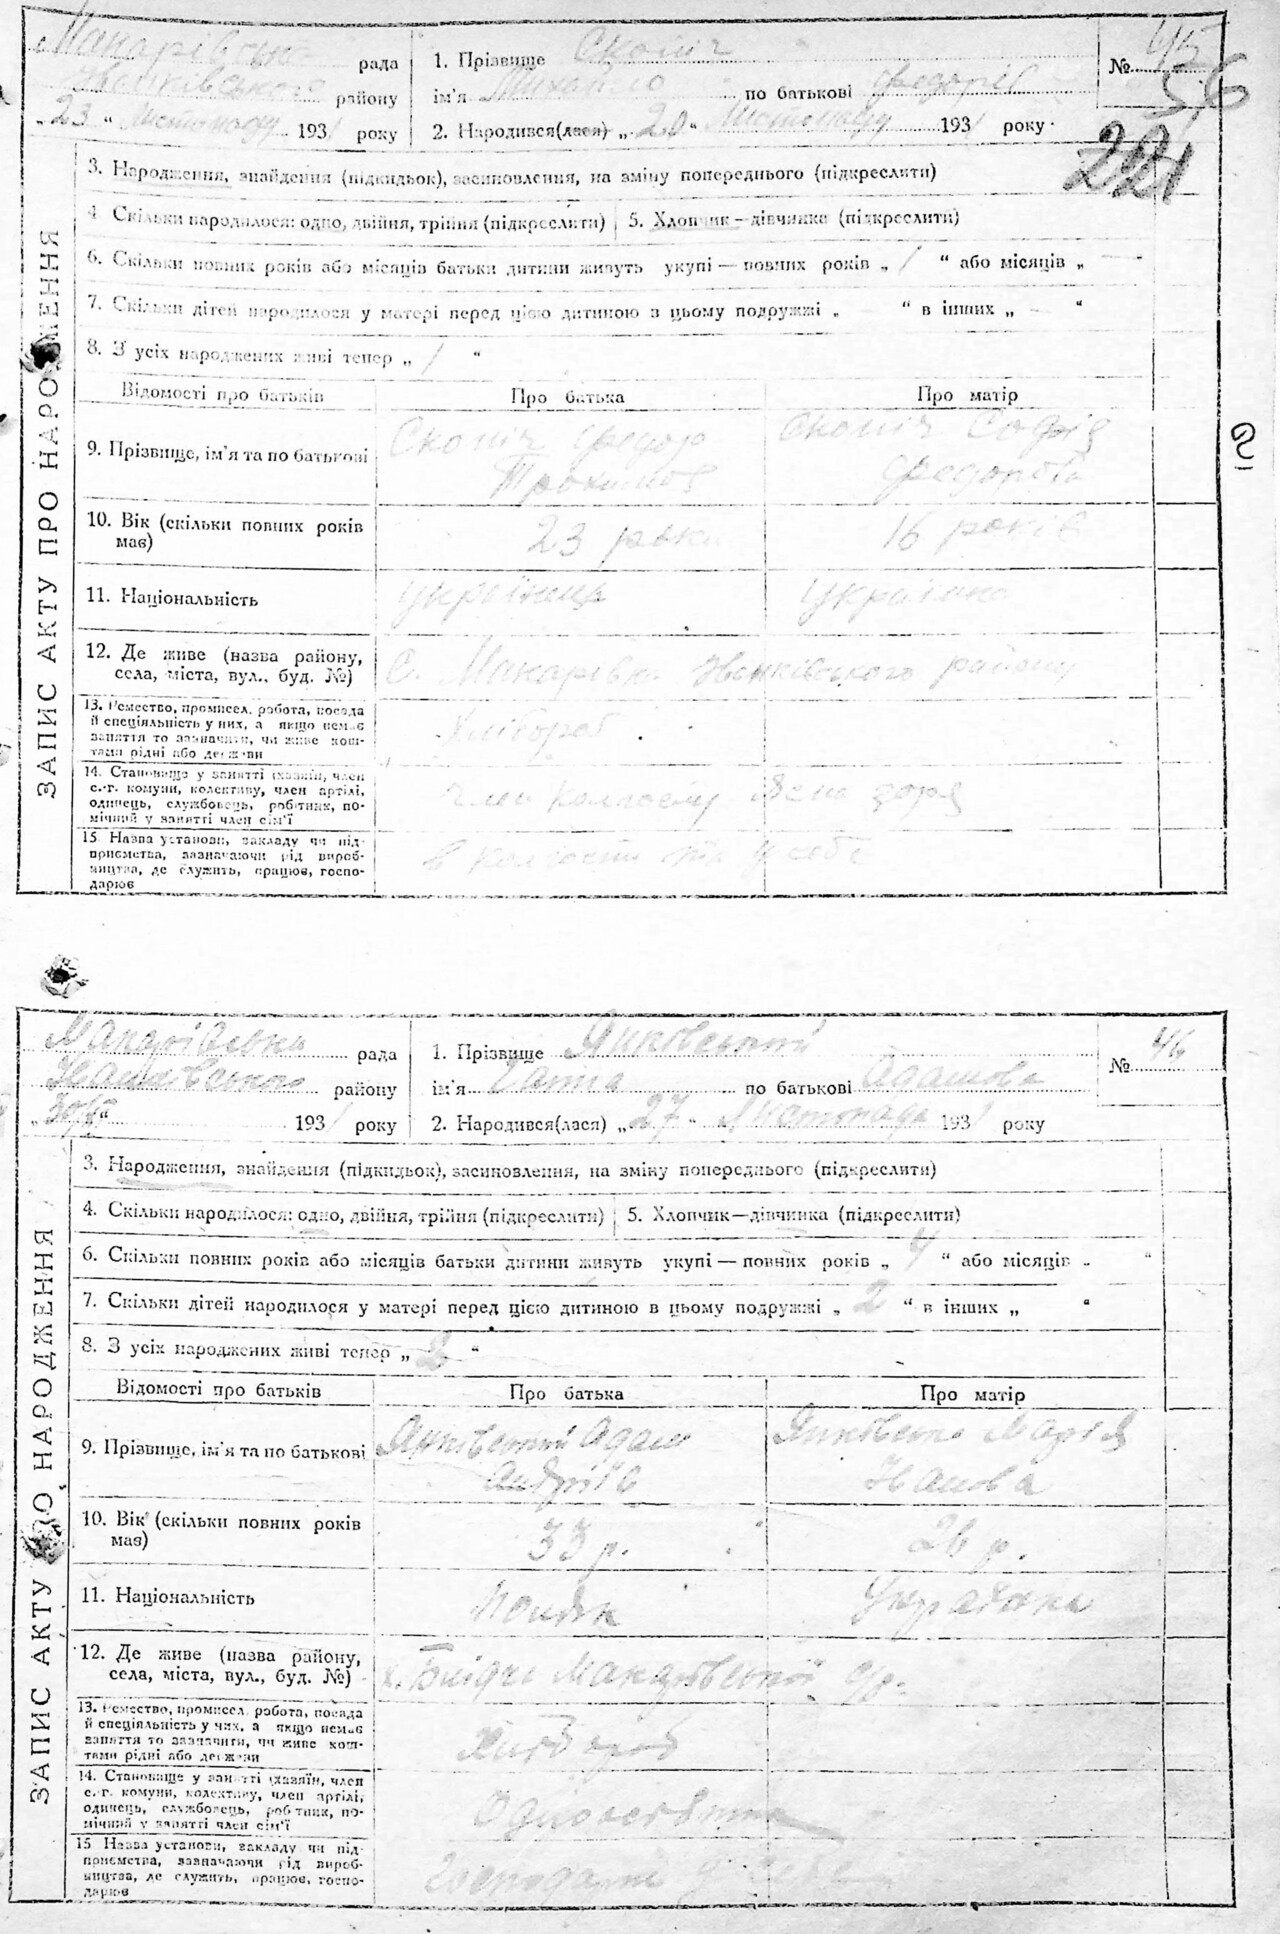 Макарівська рада
Іванківського району
„23“ Листопаду 1931 року
1. Прізвище Скопіч
ім'я Михайло по батькові Федорів
2. Народився(лася) „20“ Листопаду 1931 року
№ 45
56
221
ЗАПИС АКТУ ПРО НАРОДЖЕННЯ
3. Народження, знайдення (підкидьок), засиновлення, на зміну попереднього (підкреслити)
4. Скільки народилося: одно, двійня, трійня (підкреслити) 5. Хлопчик—дівчинка (підкреслити)
6. Скільки повних років або місяців батьки дитини живуть укупі — повних років „ 1 “ або місяців „ —
7. Скільки дітей народилося у матері перед цією дитиною в цьому подружжі „ “ в інших „ - “
8. З усіх народжених живі тепер „ 1 “
Відомості про батьків Про батька Про матір
9. Прізвище, ім'я та по батькові Скопіч Федор Скопіч Софія
Трохимов Федорова
10. Вік (скільки повних років має) 23 роки 16 років
11. Національність Українець Українка
12. Де живе (назва району, села, міста, вул., буд. №) С. Макарівка Іванківського району
13. Ремество, промисел, робота, посада й спеціяльність у них, а якщо немає заняття то зазначити, чи живе коштами рідні або держави Хлібороб
14. Становище у занятті (хазяїн, член с.-г. комуни, колективу, член артілі, одинець, службовець, робітник, помічний у занятті член сім'ї член колгоспу зоря
15 Назва установи, закладу чи підприємства, зазначаючи рід виробництва, де служить, працює, господарює в колгоспи
Макарівська рада
Іванківського району
„30/XI“ 1931 року
1. Прізвище Янковський
ім'я Ганна по батькові Адамова
2. Народився(лася) „27“ Листопада 1931 року
№ 46
ЗАПИС АКТУ ПРО НАРОДЖЕННЯ
3. Народження, знайдення (підкидьок), засиновлення, на зміну попереднього (підкреслити)
4. Скільки народилося: одно, двійня, трійня (підкреслити) 5. Хлопчик—дівчинка (підкреслити)
6. Скільки повних років або місяців батьки дитини живуть укупі — повних років „ 4 “ або місяців „ “
7. Скільки дітей народилося у матері перед цією дитиною в цьому подружжі „ 2 “ в інших „ “
8. З усіх народжених живі тепер „ 2 “
Відомості про батьків Про батька Про матір
9. Прізвище, ім'я та по батькові Янковський Адам Янковська Марія
Андріїв Іванова
10. Вік (скільки повних років має) 33 р. 26 р.
11. Національність поляк Українка
12. Де живе (назва району, села, міста, вул., буд. №) х. Макарівської с/р.
13. Ремество, промисел, робота, посада й спеціяльність у них, а якщо немає заняття то зазначити, чи живе коштами рідні або держави Хлібороб
14. Становище у занятті (хазяїн, член с.-г. комуни, колективу, член артілі, одинець, службовець, робітник, помічний у занятті член сім'ї Одноосібник -
15 Назва установи, закладу чи підприємства, зазначаючи рід виробництва, де служить, працює, господарює